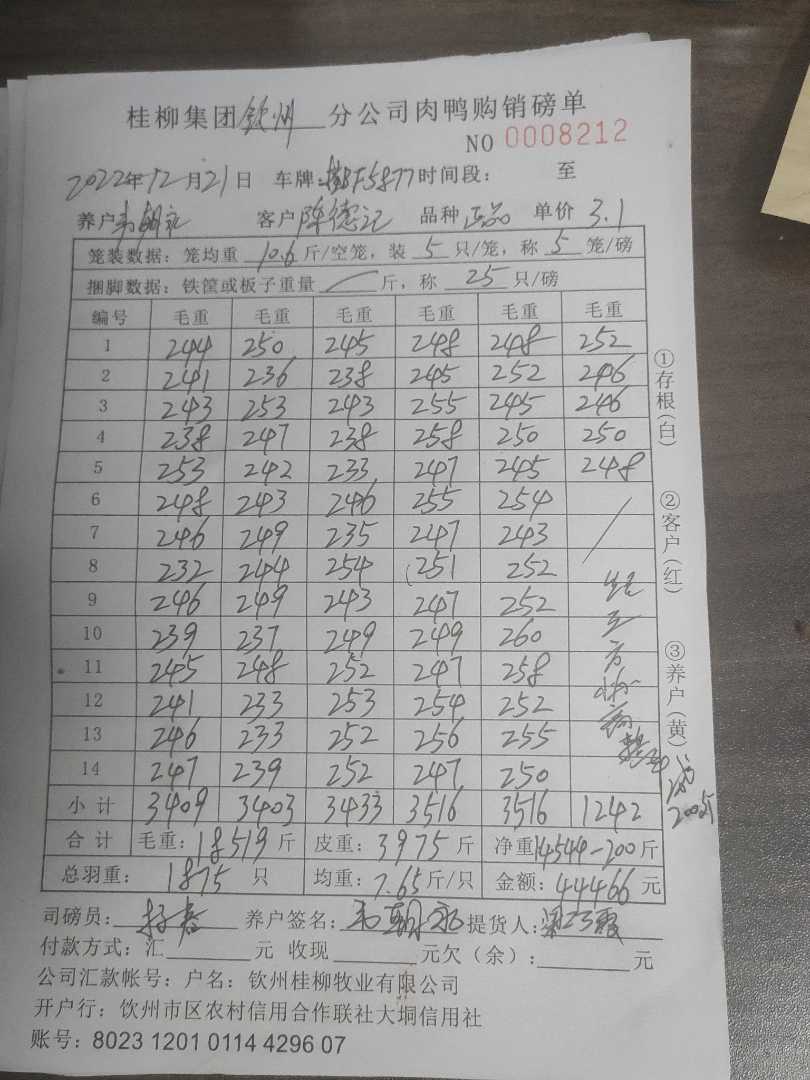 桂柳集团钦州分公司肉鸭购销磅单
NO 0008212
2022年12月21日 车牌: F5877 时间段: 至
养户 客户 陈德记 品种 正品 单价 3.1
笼装数据: 笼均重 10.6 斤/空笼, 装 5 只/笼, 称 5 笼/磅
捆脚数据: 铁筐或板子重量 / 斤, 称 25 只/磅
编号 毛重 毛重 毛重 毛重 毛重 毛重
1 244 250 245 248 248 252
2 241 236 238 245 252 246
3 243 253 243 255 245 246
4 238 247 238 258 250 250
5 253 242 233 247 245 248
6 248 243 246 255 254 /
7 246 249 235 247 243
8 232 244 254 251 252
9 246 249 243 247 252
10 239 237 249 249 260
11 245 248 252 247 258
12 241 233 253 254 252
13 246 233 252 256 255
14 247 239 252 247 250
小计 3409 3403 3433 3516 3516 1242
合计 毛重: 18519 斤 皮重: 3975 斤 净重 14544-200 斤
总羽重: 1875 只 均重: 7.65 斤/只 金额: 44466 元
司磅员: 养户签名: 提货人:
付款方式: 汇 元 收现 元欠(余): 元
公司汇款帐号: 户名: 钦州桂柳牧业有限公司
开户行: 钦州市区农村信用合作联社大垌信用社
账号: 8023 1201 0114 4296 07
①存根(白) ②客户(红) ③养户(黄)
200斤